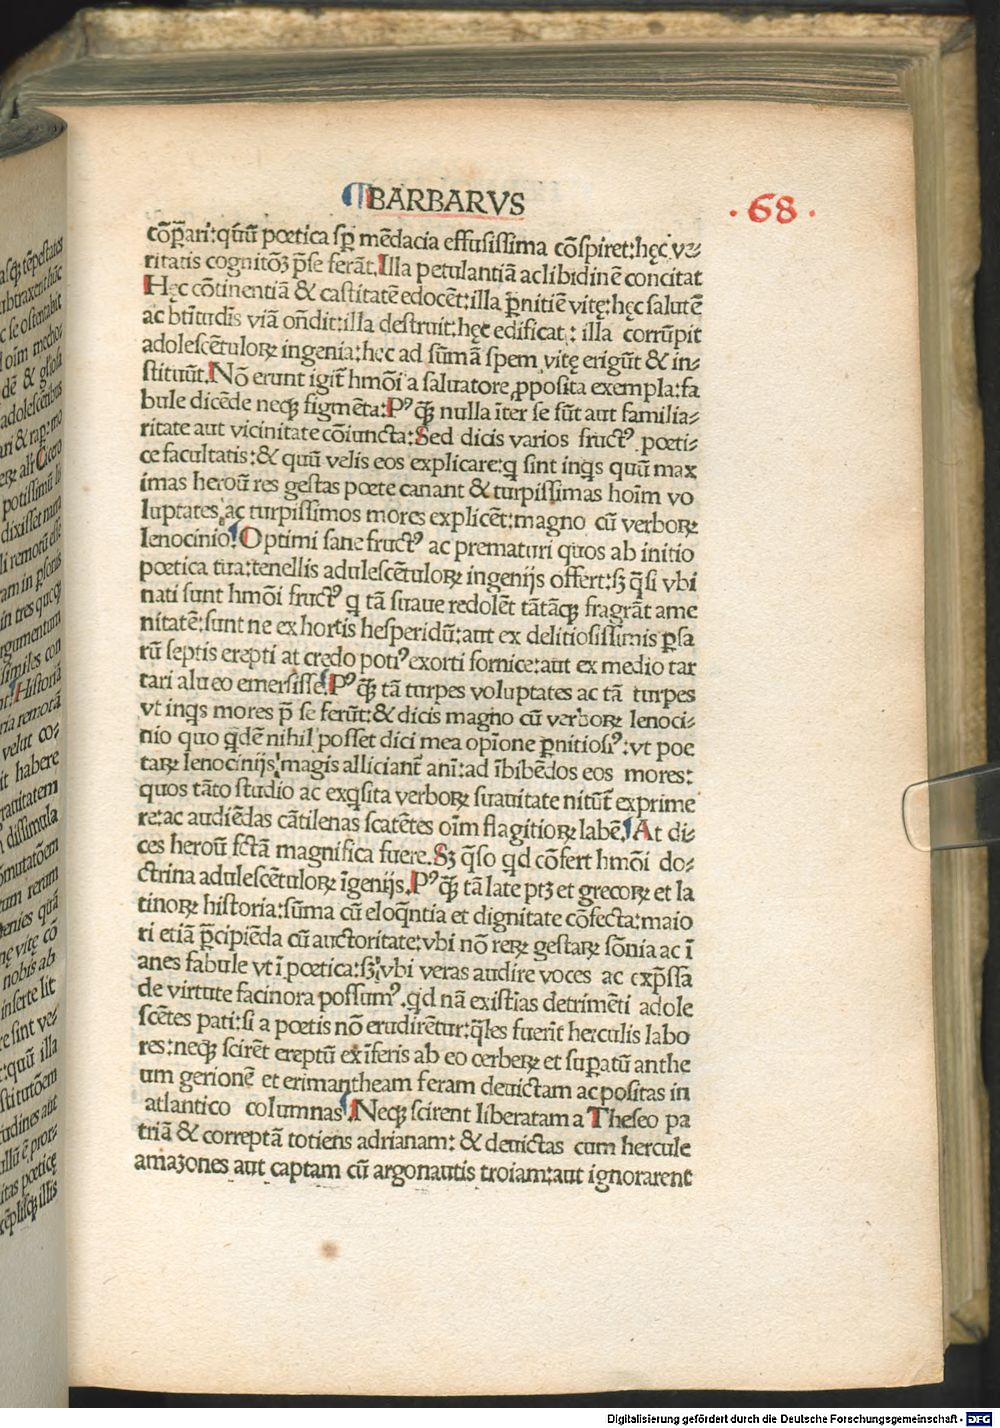 BARBARVS
·68·
cōꝑari:quū poetica sꝑ mēdacia effusissima cōspiret:hęc ve⸗
ritatis cognitōꝫ p̄se ferāt.Illa petulantiā ac libidinē concitat
Hęc cōtinentiā & castitatē edocēt:illa ꝑnitiē vitę:hęc salutē
ac btītudīs viā on̄dit:illa destruit:hęc edificat: illa corrūpit
adolescētuloꝝ ingenia:hęc ad sūmā spem vitę erigūt & in⸗
stituūt.Nō erunt igit̄ hmōi a saluatore ꝓposita exempla:fa
bule dicēde neqꝫ figmēta:Pꝰ q̄ꝫ nulla īter se sūt aut familia⸗
ritate aut vicinitate cōiuncta:Sed dicis varios fructꝰ poeti⸗
ce facultatis:& quū velis eos explicare:q sint inqs quū max
imas heroū res gestas poete canant & turpissimas hoīm vo
luptates ac turpissimos mores explicēt:magno cū verboꝝ
lenocinio.Optimi sane fructꝰ ac prematuri quos ab initio
poetica tua:tenellis adulescētuloꝝ ingenijs offert:sꝫ q̄si vbi
nati sunt hmōi fructꝰ q tā suaue redolēt tātāqꝫ fragrāt ame
nitatē:sunt ne ex hortis hesperidū:aut ex delitiosissimis ꝑsa
rū septis erepti at credo potiꝰ exorti fornice:aut ex medio tar
tari alueo emersisse.Pꝰ q̄ꝫ tā turpes voluptates ac tā turpes
vt inqs mores p̄ se ferūt:& dicis magno cū verboꝝ lenoci⸗
nio quo qdē nihil posset dici mea opīone ꝑnitiosiꝰ:vt poe
taꝝ lenocinijs magis alliciant̄ anī:ad ībibēdos eos mores:
quos tāto studio ac exqsita verboꝝ suauitate nitūt̄ exprime
re:ac audiēdas cātilenas scatētes oīm flagitioꝝ labē.At di⸗
ces heroū fctā magnifica fuere.Sꝫ q̄so qd cōfert hmōi do⸗
ctrina adulescētuloꝝ īgenijs.Pꝰ q̄ꝫ tā late ptꝫ et grecoꝝ et la
tinoꝝ historia:sūma cū eloq̄ntia et dignitate cōfecta:maio
ri etiā p̄cipiēda cū auctoritate:vbi nō reꝝ gestaꝝ sōnia ac ī
anes fabule vt ī poetica:sꝫ vbi veras audire voces ac exp̄ssa
de virtute facinora possumꝰ.qd nā existias detrimēti adole
scētes pati:si a poetis nō erudirētur:q̄les fuerīt herculis labo
res:neqꝫ scirēt ereptū ex īferis ab eo cerbeꝝ et suꝑatū anthe
um gerionē et erimantheam feram deuictam ac positas in
atlantico columnas.Neqꝫ scirent liberatam a Theseo pa
triā & correptā totiens adrianam: & deuictas cum hercule
amazones aut captam cū argonautis troiam:aut ignorarent
Digitalisierung gefördert durch die Deutsche Forschungsgemeinschaft - DFG